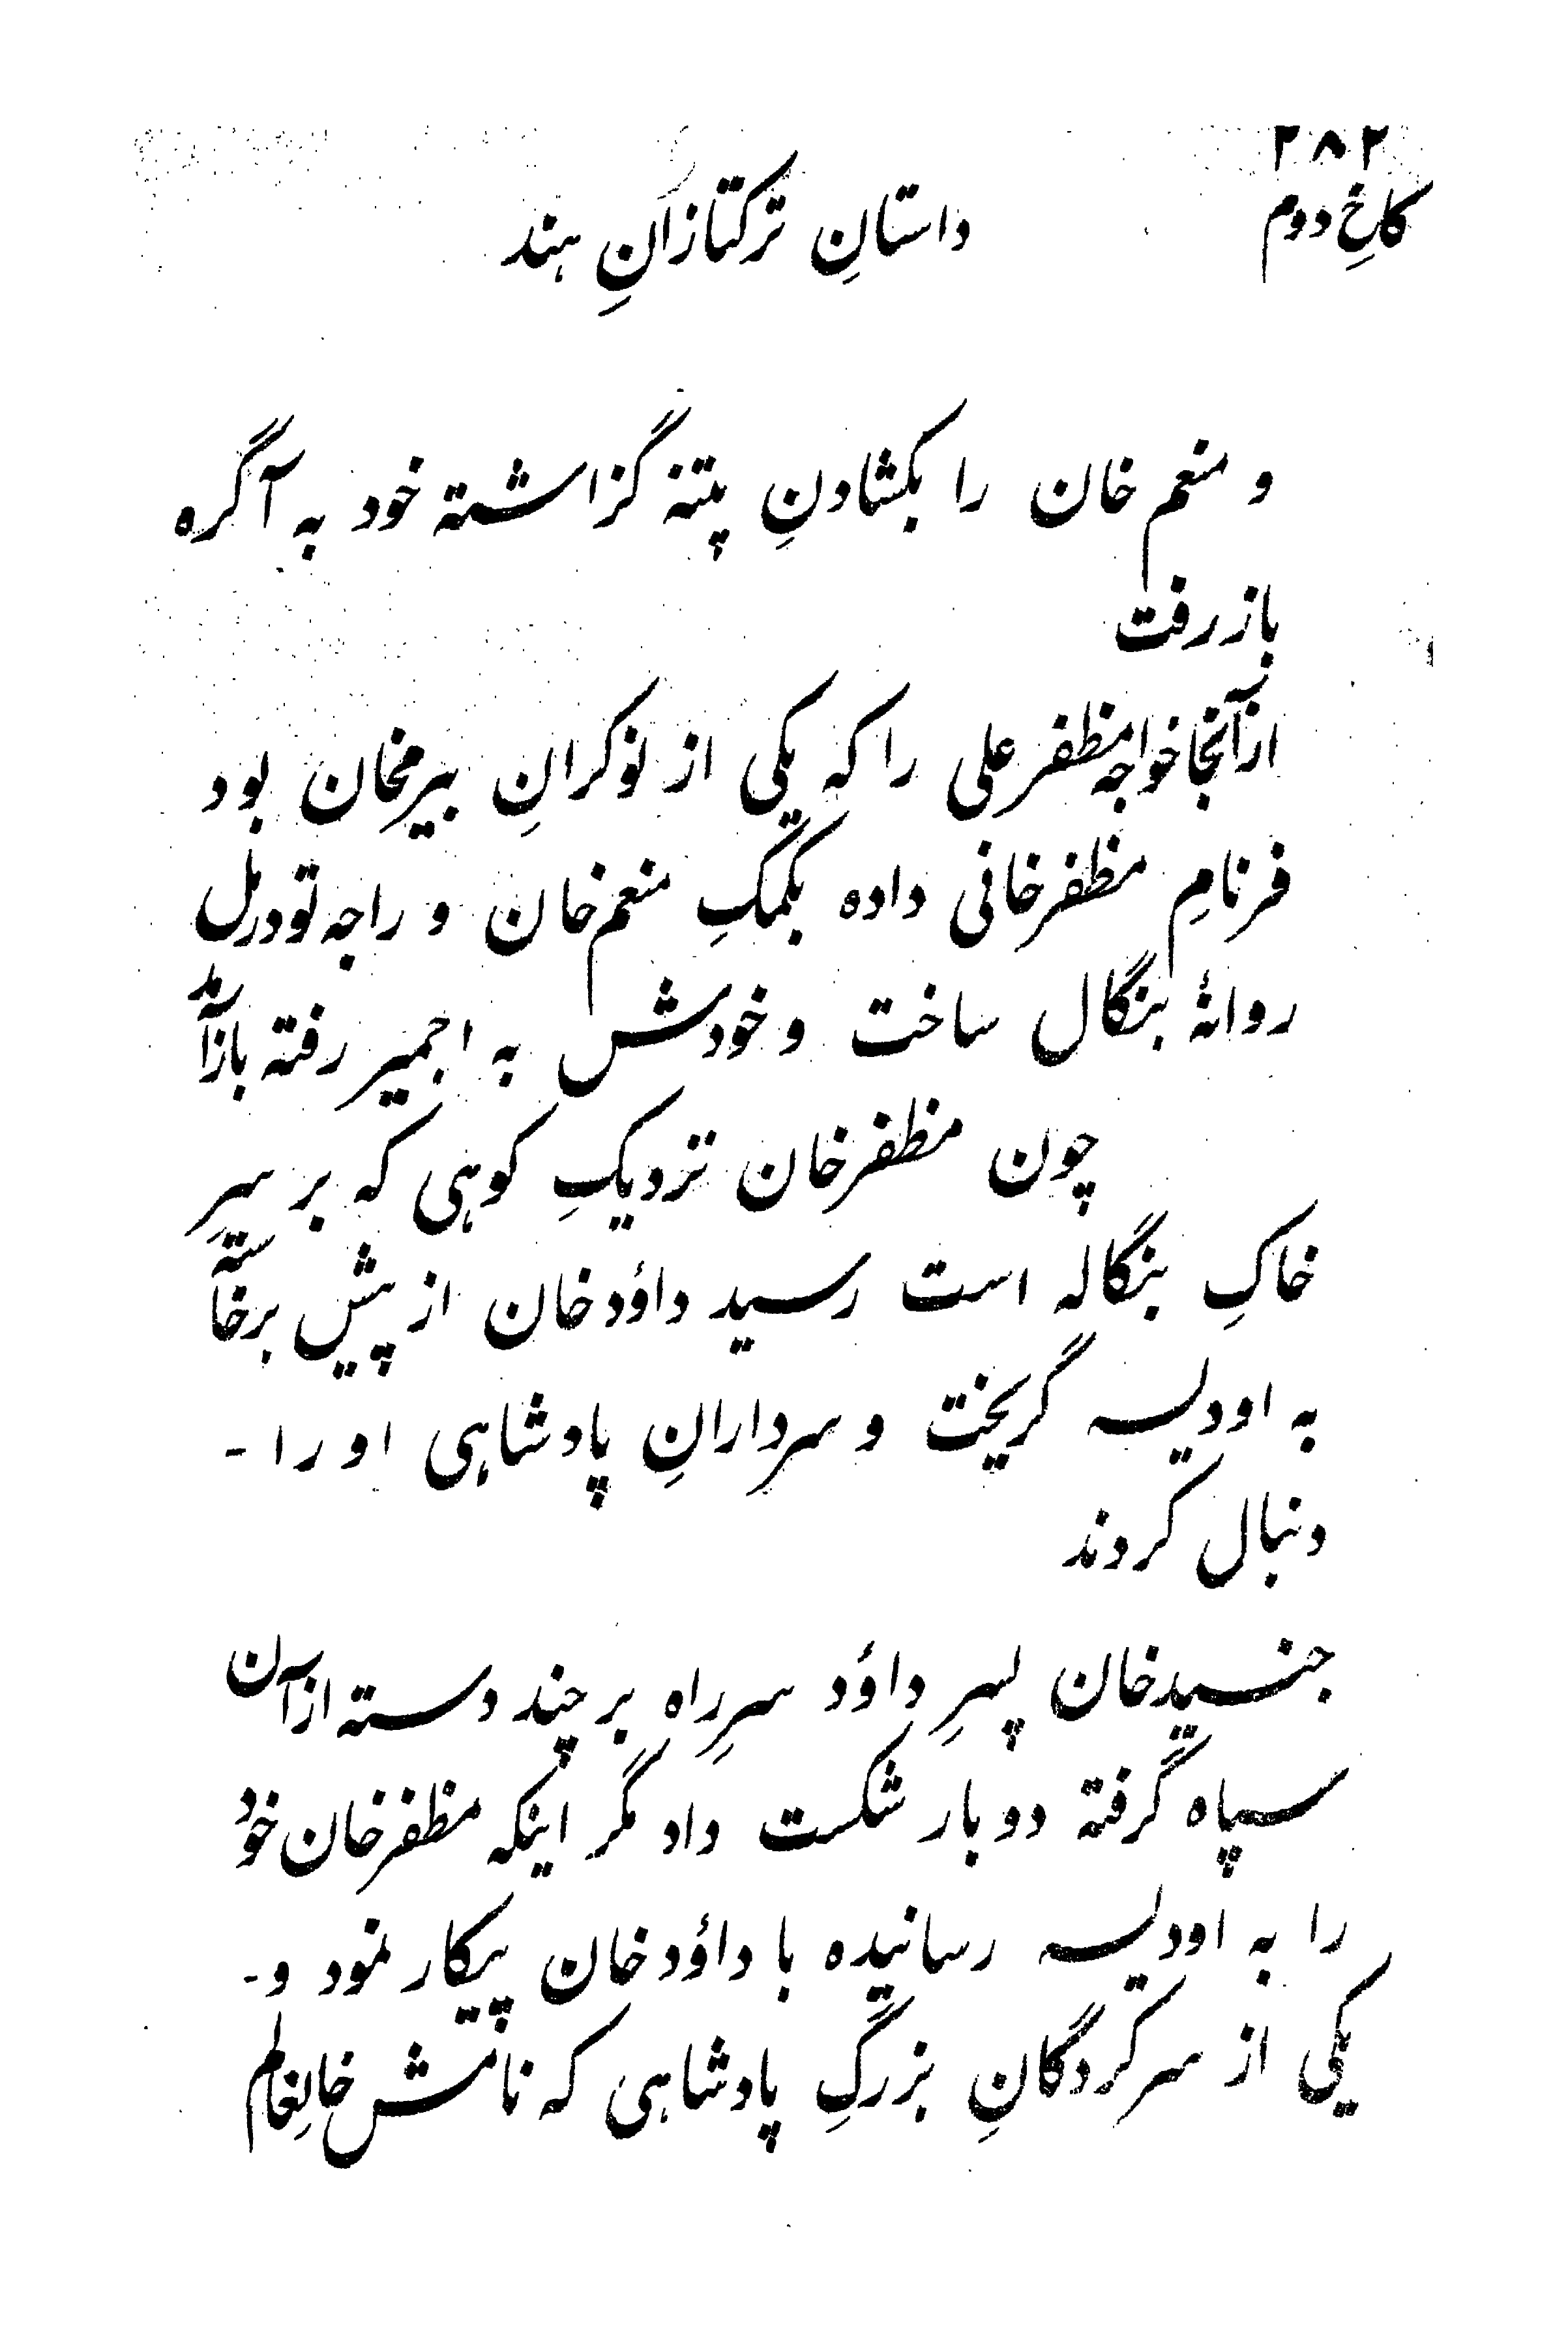 ۲۸۲
کاخِ دوم
داستانِ ترکتازانِ هند
و منعم خان را بکشادنِ پتنه گزاشته خود به آگره
بازرفت
ازآنجا خواجه مظفر علی را که یکی از نوکرانِ بیرمخان بود
فرنامِ مظفرخانی داده بکمکِ منعم خان و راجه تودرمل
روانهٔ بنگال ساخت و خودش به اجمیر رفته بازآمد
چون مظفرخان نزدیکِ کوهی که بر سرِ
خاکِ بنگاله است رسید داؤدخان از پیش برخاسته
به اودیسه گریخت و سردارانِ پادشاهی او را -
دنبال کردند
جنیدخان پسرِ داؤد سرِ راه بر چند دسته ازآن
سپاه گرفته دو بار شکست داد مگر اینکه مظفرخان خود
را به اودیسه رسانیده با داؤدخان پیکار نمود و -
یکی از سرکردگانِ بزرگِ پادشاهی که نامش خانعالم